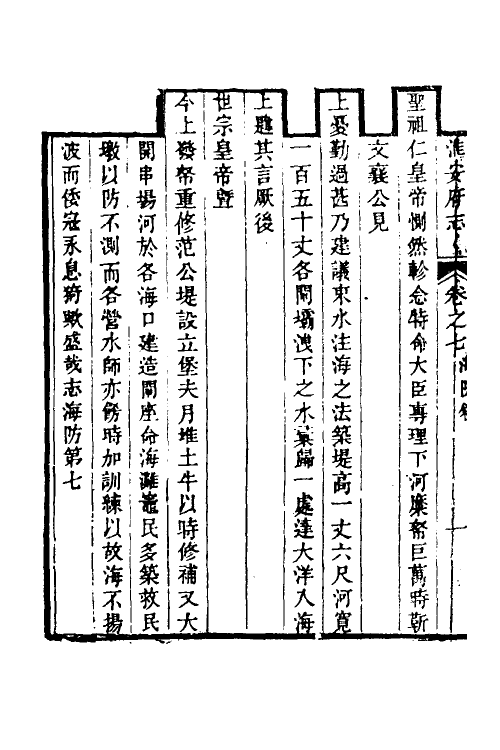 淮安府志 卷之七 海防 一
聖祖仁皇帝惻然軫念特命大臣專理下河糜帑巨萬時靳
文襄公見
上憂勤過甚乃建議束水注海之法築堤高一丈六尺河寬
一百五十丈各閘壩洩下之水彙歸一處達大洋入海
上韙其言厥後
世宗皇帝暨
今上發帑重修范公堤設立堡夫月堆土牛以時修補又大
開串塲河於各海口建造閘座命海灘竈民多築救民
墩以防不測而各營水師亦飭時加訓練以故海不揚
波而倭冦永息猗歟盛哉志海防第七